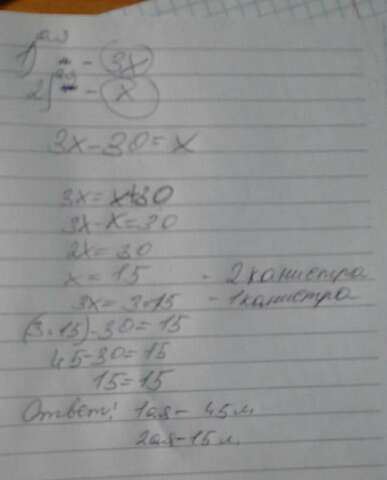 1) - 3x
2) - x
3x-30=x
3x=x+30
3x-x=30
2x=30
x=15 - 2 канистра
3x=3·15 - 1 канистра
(3·15)-30=15
45-30=15
15=15
Ответ: 1 - 45 л.
2 - 15 л.